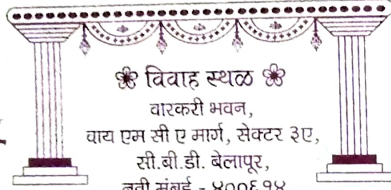 विवाह स्थळ
वारकरी भवन,
वाय एम सी ए मार्ग, सेक्टर ३ए,
सी.बी.डी. बेलापूर,
नवी मुंबई - ४००६१४